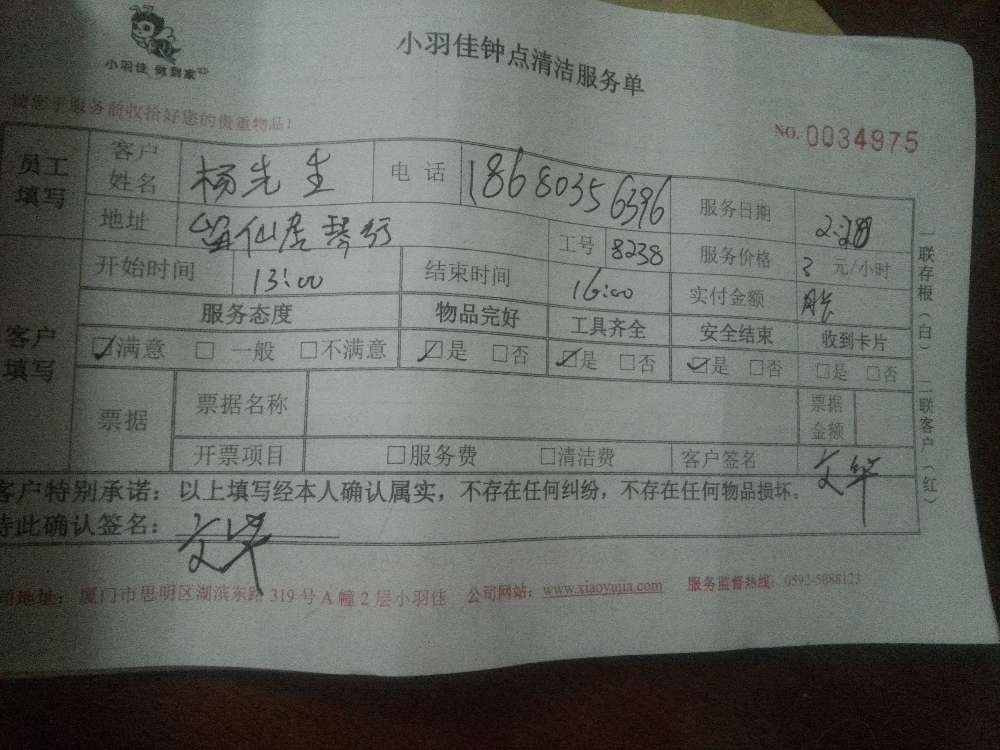 小羽佳 做到家
小羽佳钟点清洁服务单
请您于服务前收拾好您的贵重物品!
NO. 0034975
员工填写
客户姓名 杨先生 电话 18680356396 服务日期 2.28
地址 仙居琴行 工号 8238 服务价格 元/小时
开始时间 13:00 结束时间 16:00 实付金额 月卡
客户填写
服务态度 物品完好 工具齐全 安全结束 收到卡片
☑满意 □一般 □不满意 ☑是 □否 ☑是 □否 ☑是 □否 □是 □否
票据 票据名称 票据金额
开票项目 □服务费 □清洁费 客户签名 文华
客户特别承诺：以上填写经本人确认属实，不存在任何纠纷，不存在任何物品损坏。
特此确认签名： 文华
司地址： 厦门市思明区湖滨东路319号A幢2层小羽佳 公司网站：www.xiaoyujia.com 服务监督热线：0592-5888123
一联存根（白） 二联客户（红）